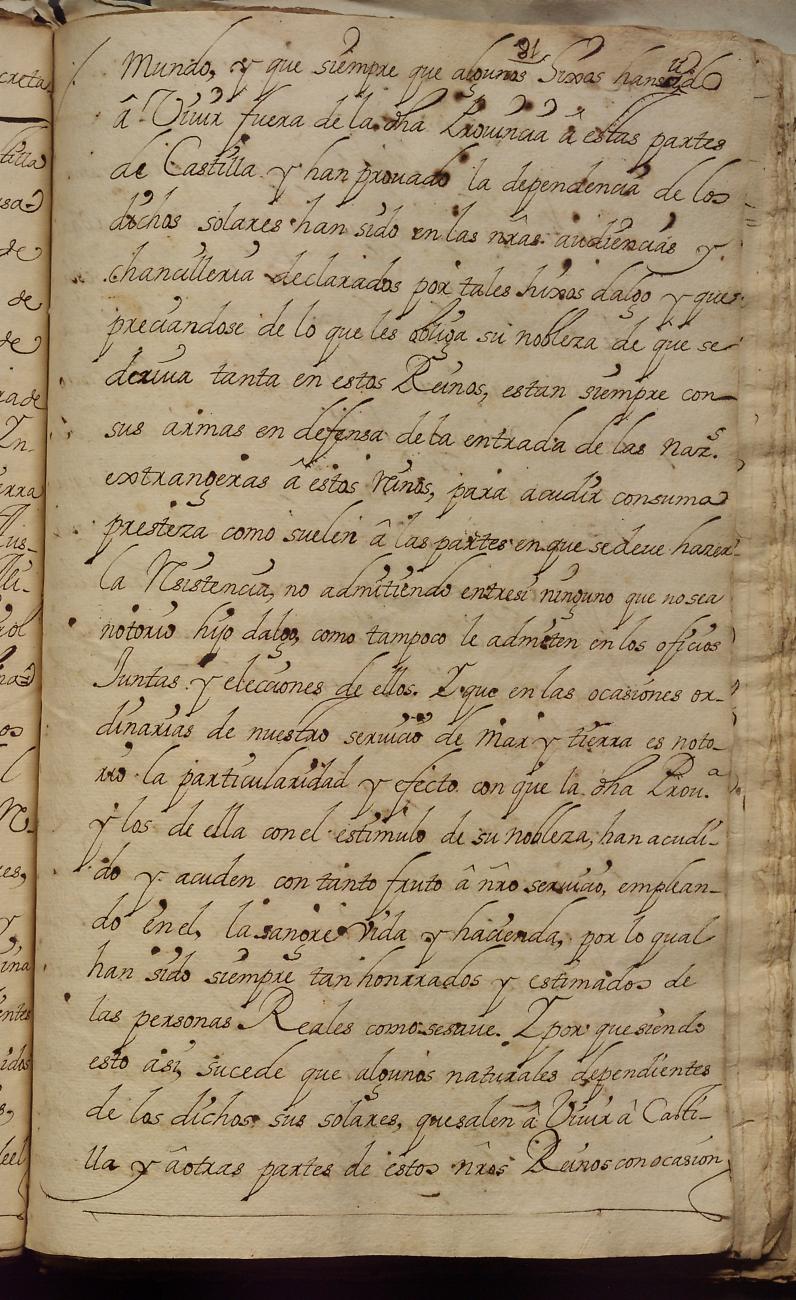 81
Mundo, y que siempre que algunos hixos han salido
â Viuir fuera de la dha Prouincia â estas partes
de Castilla y han prouado la dependencia de los
dichos solares han sido en las nrâs audiencias y
chancilleria declarados por tales hixos dalgo y que
preciandose de lo que les obliga su nobleza de que se
deriua tanta en estos Reinos, estan siempre con
sus armas en defensa de la entrada de las naz.s
extrangeras â estos reinos, para acudir con suma
presteza como suelen â las partes en que se deue hazer
la Resistencia, no admitiendo entre si ninguno que no sea
notorio hijo dalgo, como tampoco le admiten en los oficios
Juntas y elecciones de ellos. Y que en las ocasiones or-
dinarias de nuestro seruicio de Mar y tierra es noto-
rio la particularidad y efecto con que la dha Prou.a
y los de ella con el estimulo de su nobleza, han acudi-
do y acuden con tanto fruto â nrô seruicio, emplean-
do en el, la sangre Vida y hacienda, por lo qual
han sido siempre tan honrrados y estimados de
las personas Reales como se saue. Y por que siendo
esto asi, sucede que algunos naturales dependientes
de los dichos sus solares, que salen â Viuir â Casti-
lla y â otras partes de estos nrôs Reinos con ocasion